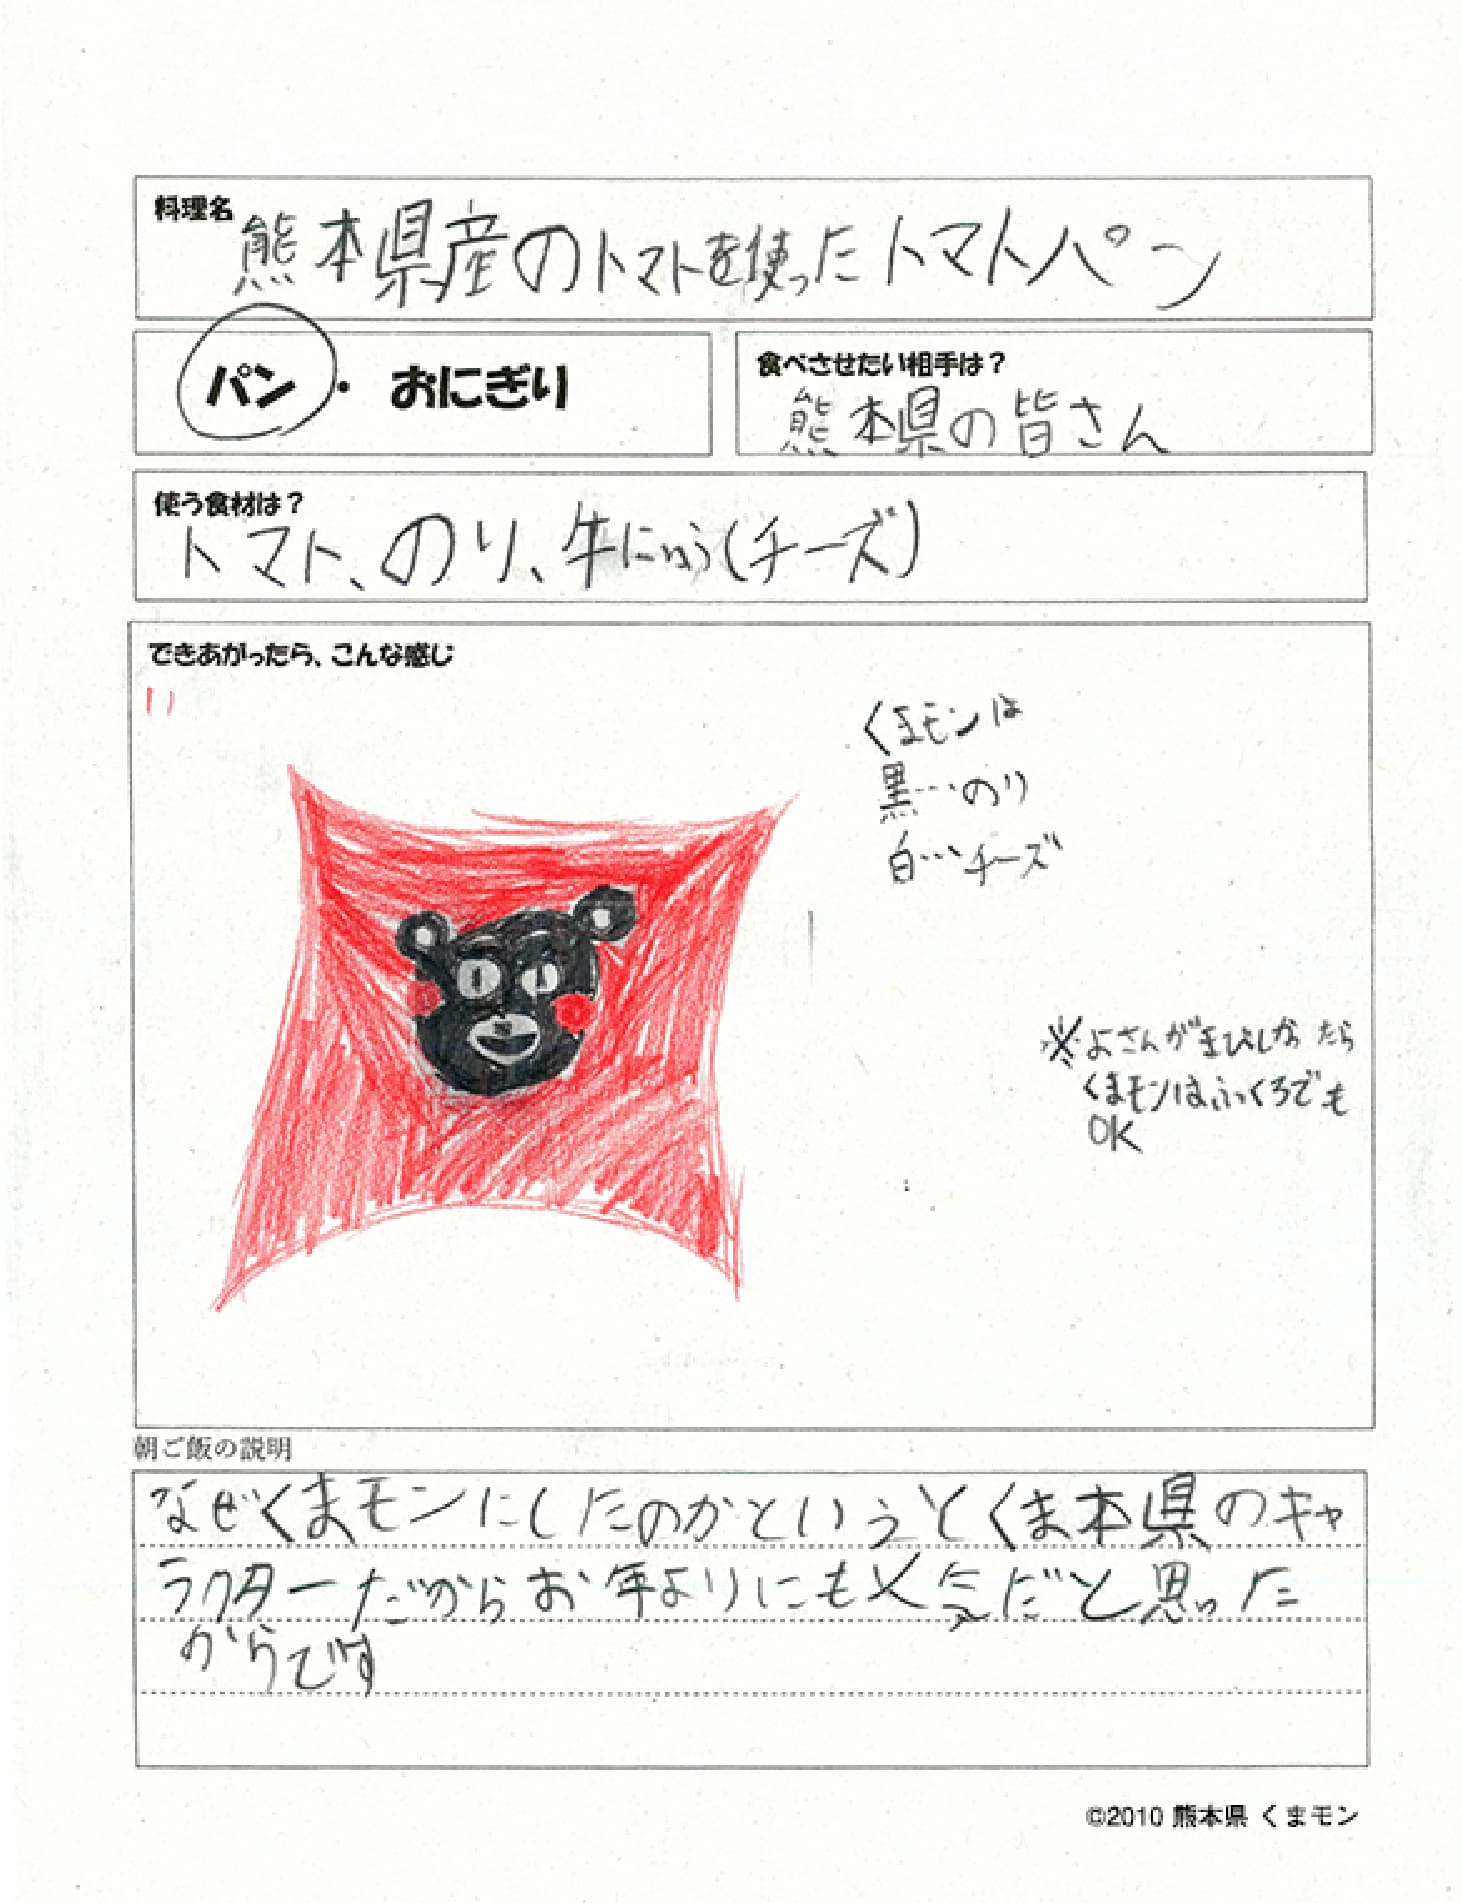 料理名
熊本県産のトマトを使ったトマトパン
パン・おにぎり
食べさせたい相手は？
熊本県の皆さん
使う食材は？
トマト、のり、牛にゅう(チーズ)
できあがったら、こんな感じ
くまモンは
黒…のり
白…チーズ
※よさんがきびしかったら
くまモンはふっくろでも
OK
朝ご飯の説明
なぜくまモンにしたのかというとくま本県のキャ
ラクターだからお年よりにも人気だと思った
からです
©2010 熊本県 くまモン